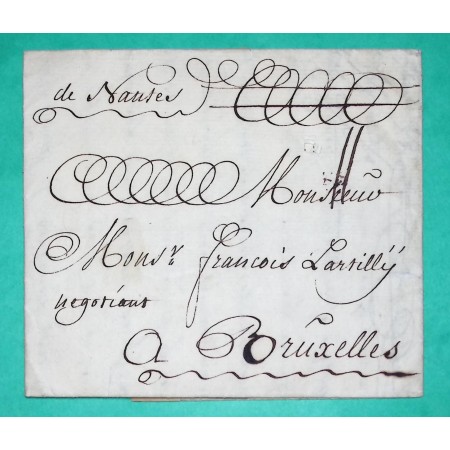 de Nantes
Monsieur
Mons.r francois Lartillÿ
negotiant
A Bruxelles